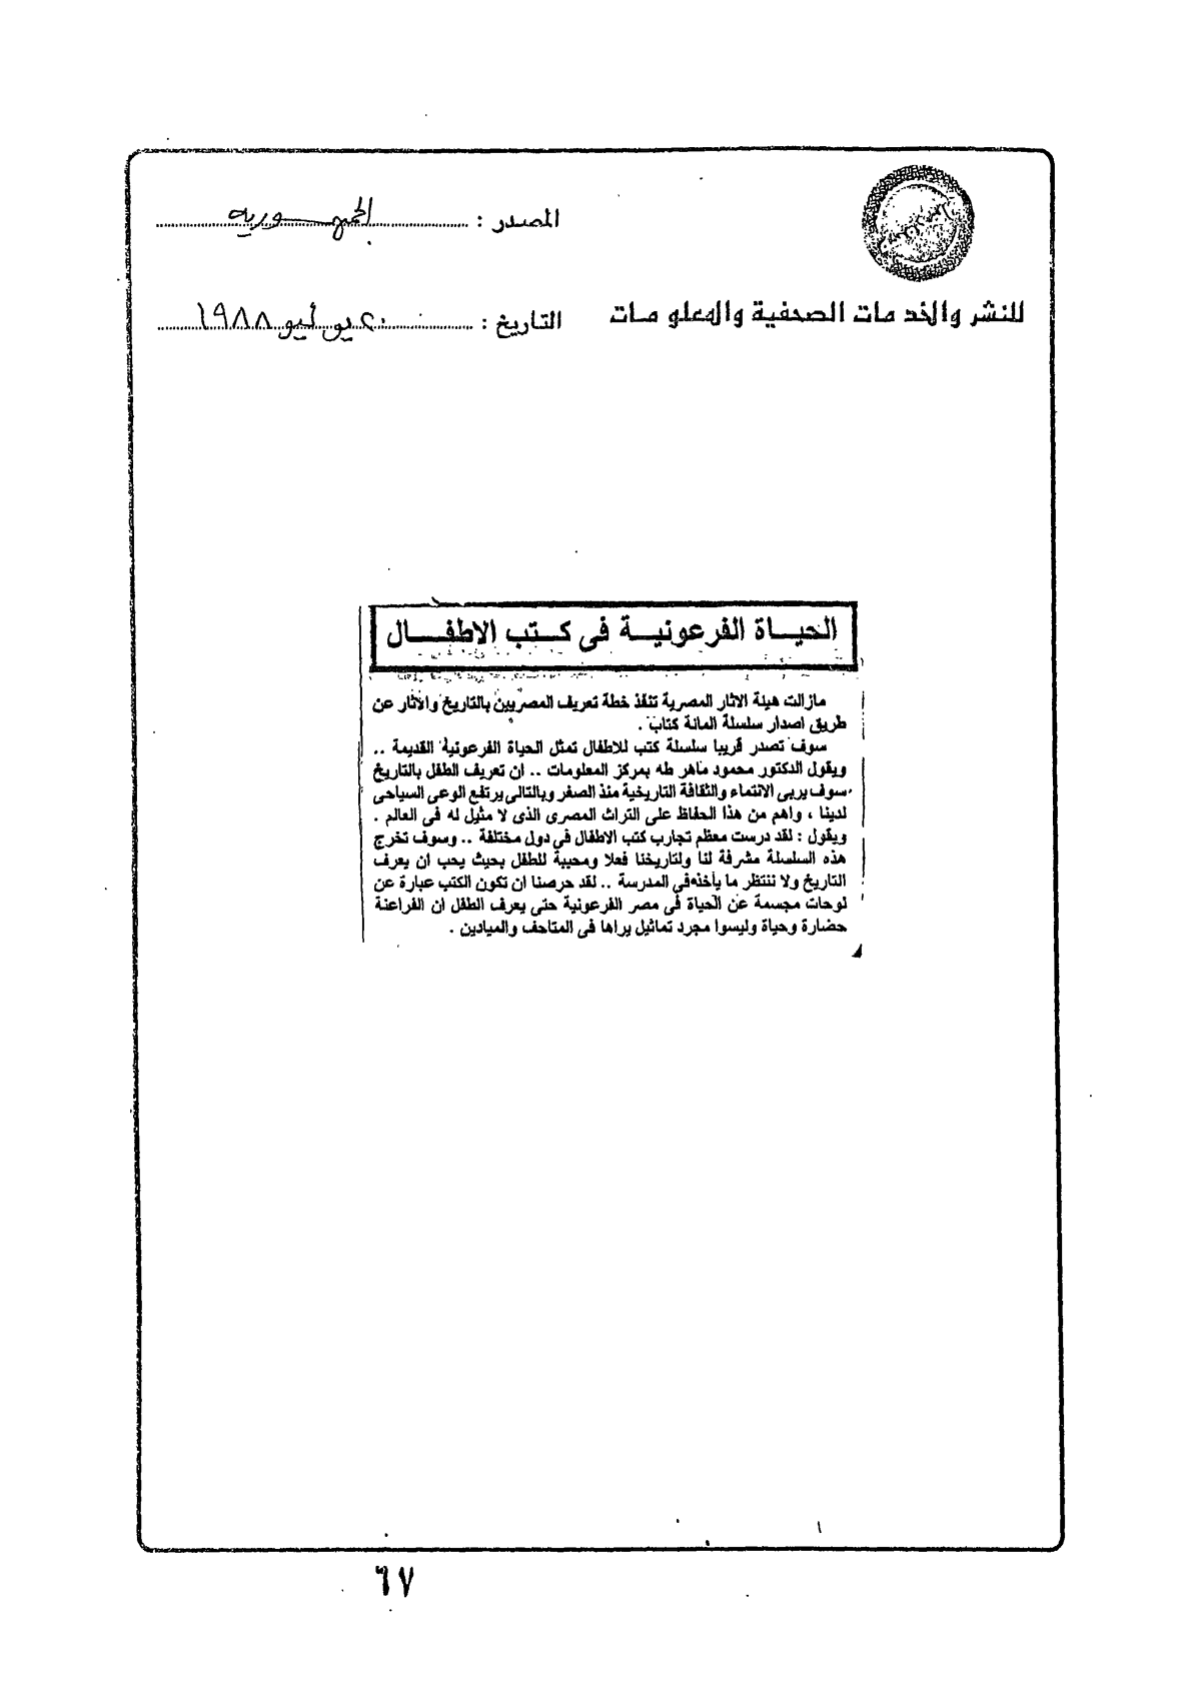 المصدر : الجمهوريه
للنشر والخدمات الصحفية والمعلومات
التاريخ : ٢٠ يوليو ١٩٨٨
الحياة الفرعونية فى كتب الاطفال
مازالت هيئة الاثار المصرية تنفذ خطة تعريف المصريين بالتاريخ والآثار عن
طريق اصدار سلسلة المائة كتاب .
سوف تصدر قريبا سلسلة كتب للاطفال تمثل الحياة الفرعونية القديمة ..
ويقول الدكتور محمود ماهر طه بمركز المعلومات .. ان تعريف الطفل بالتاريخ
سوف يربى الانتماء والثقافة التاريخية منذ الصغر وبالتالى يرتفع الوعى السياحى
لدينا ، واهم من هذا الحفاظ على التراث المصرى الذى لا مثيل له فى العالم .
ويقول : لقد درست معظم تجارب كتب الاطفال فى دول مختلفة .. وسوف تخرج
هذه السلسلة مشرفة لنا ولتاريخنا فعلا ومحببة للطفل بحيث يحب ان يعرف
التاريخ ولا ننتظر ما يأخذه فى المدرسة .. لقد حرصنا ان تكون الكتب عبارة عن
لوحات مجسمة عن الحياة فى مصر الفرعونية حتى يعرف الطفل ان الفراعنة
حضارة وحياة وليسوا مجرد تماثيل يراها فى المتاحف والميادين .
٦٧